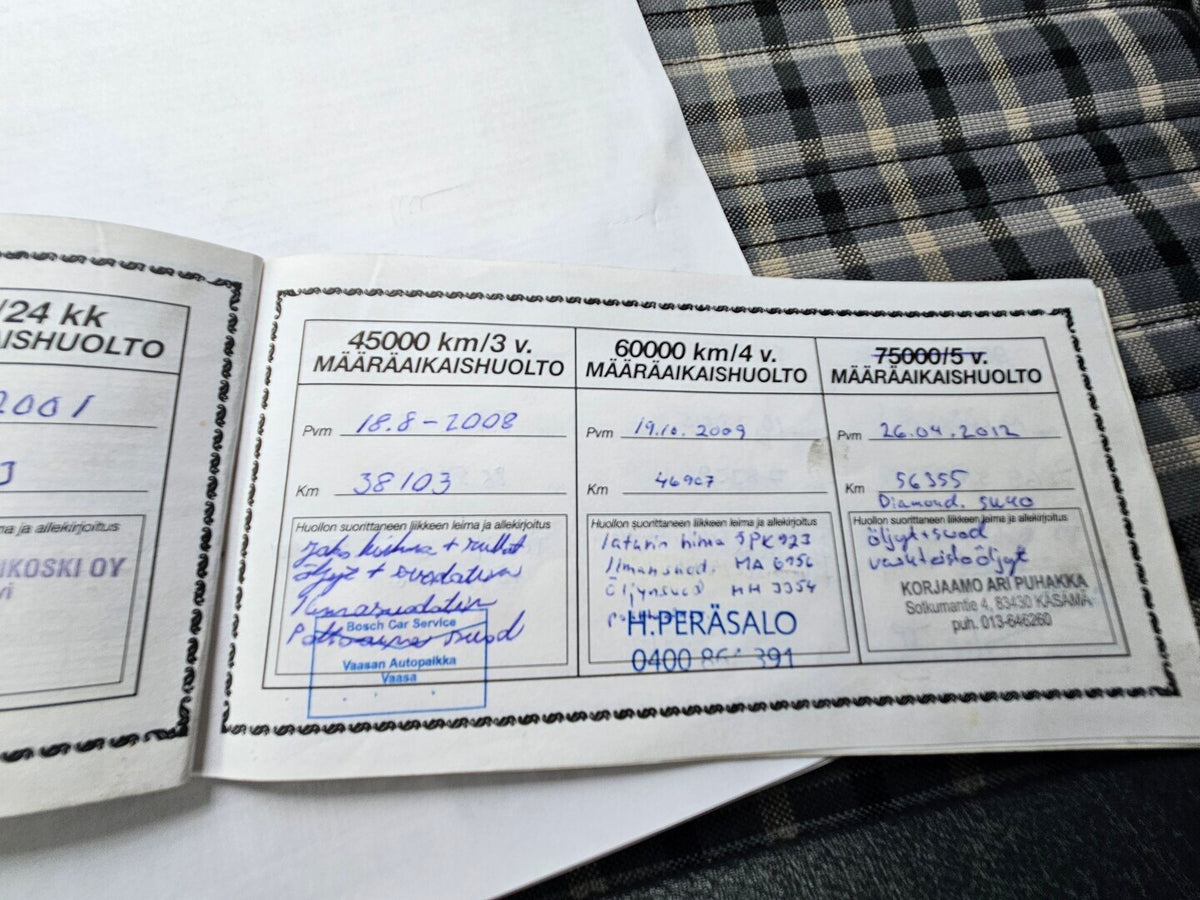 /24 kk
AISHUOLTO
2001
na ja allekirjoitus
IKOSKI OY
45000 km/3 v.
MÄÄRÄAIKAISHUOLTO
Pvm 18.8-2008
Km 38103
Huollon suorittaneen liikkeen leima ja allekirjoitus
Jako hihna + rullat
öljyt + suodatin
Ilmansuodatin
Polttoaine suod
Bosch Car Service
Vaasan Autopaikka
Vaasa
60000 km/4 v.
MÄÄRÄAIKAISHUOLTO
Pvm 19.10.2009
Km 46907
Huollon suorittaneen liikkeen leima ja allekirjoitus
laturin hihna 5PK923
Ilmansuod. MA 6756
Öljynsuod MH 3354
H.PERÄSALO
0400 864 391
75000/5 v.
MÄÄRÄAIKAISHUOLTO
Pvm 26.04.2012
Km 56355
Diamond. 5W40
Huollon suorittaneen liikkeen leima ja allekirjoitus
öljyt+suod
vaihteistoöljyt
KORJAAMO ARI PUHAKKA
Sotkumantie 4, 83430 KÄSÄMÄ
puh. 013-646260